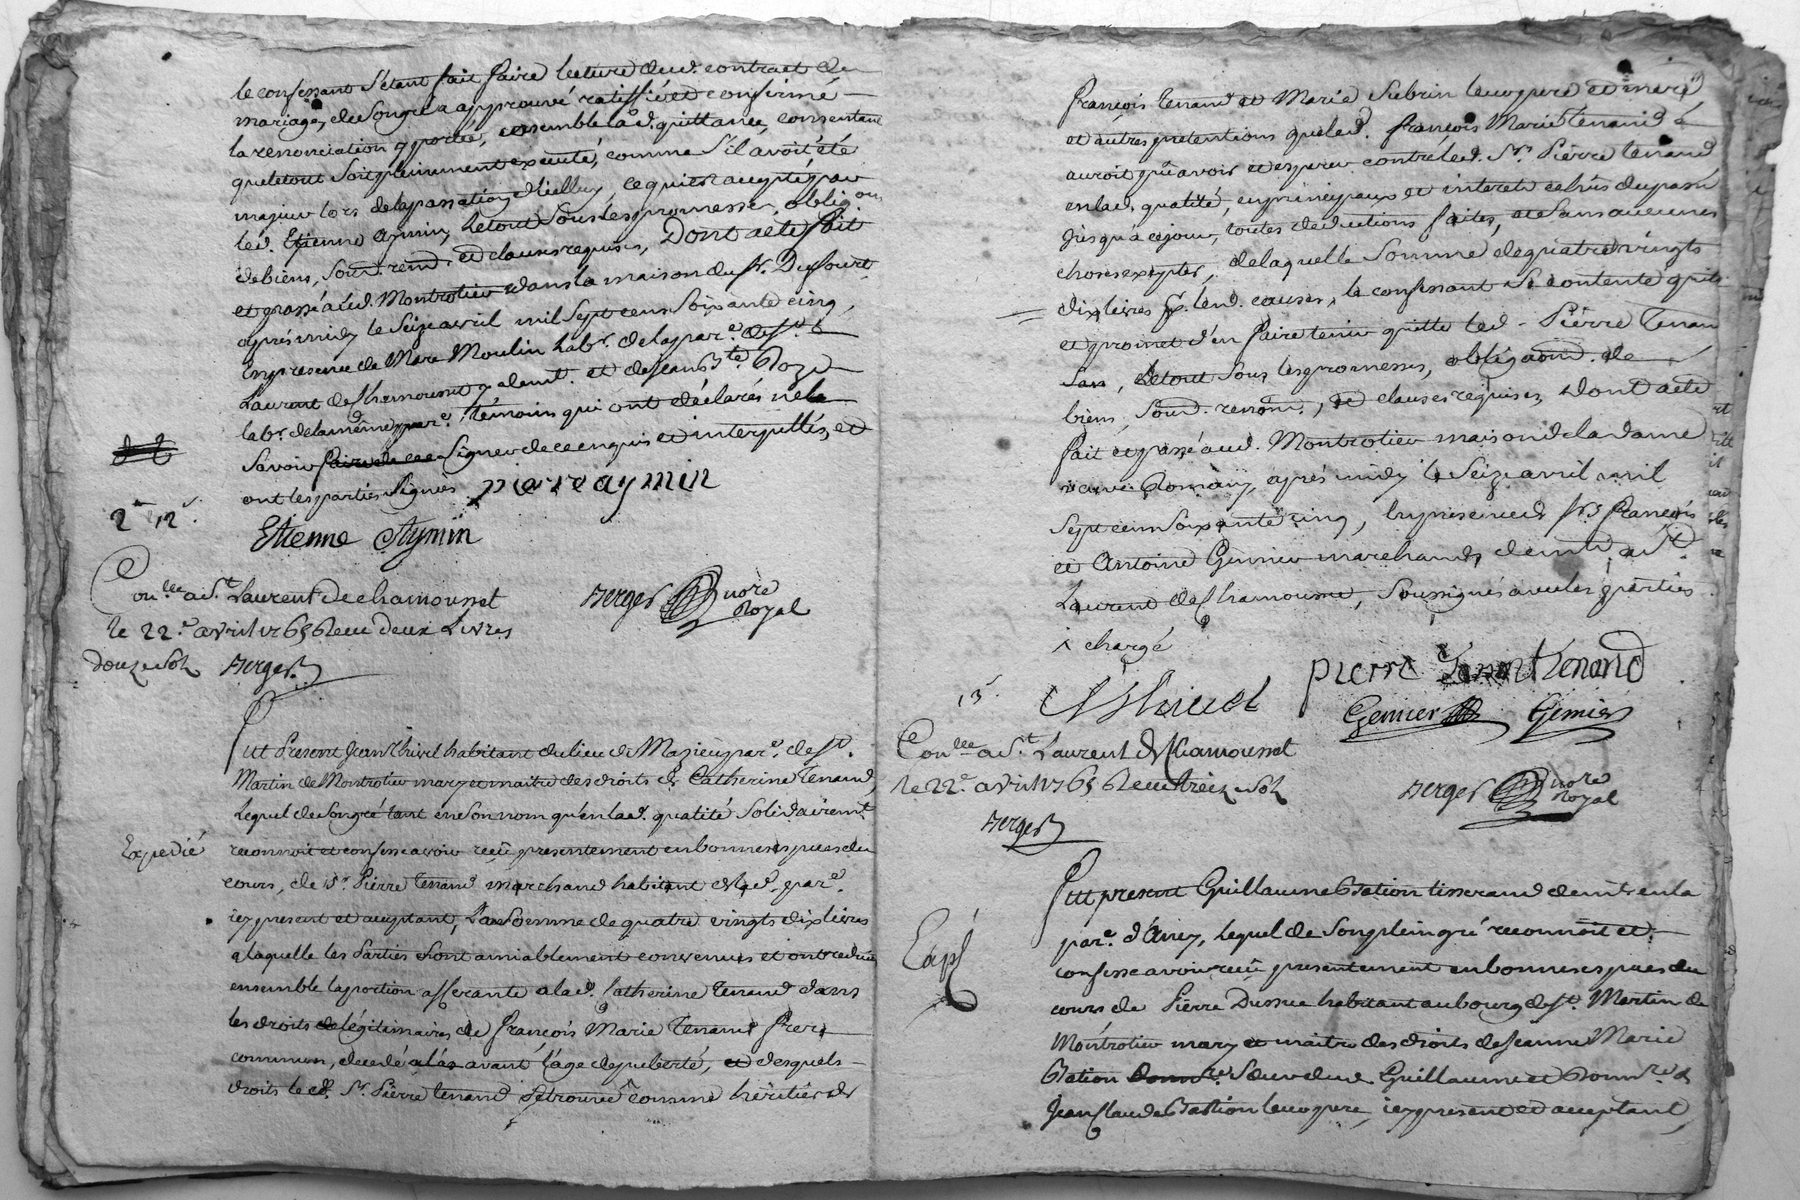 le confessant S'étant fait faire lecture dud. contract de
mariage, de Songré a approuvé ratiffié et confirmé
la renonciation y portée, ensemble lad. quittance, consentant
que letout Soit pleinement executé, comme S'il avoit été
majeur lors de la passation d'icelluy, ce qui est accepté par
led. Etienne aymin, letout Sous les promesses, obligaons
de biens, Soud. rend. et clauses requises, Dont acte fait
et passé aud. Montrotier dans la maison du Sr. Dufourt
après midy le Seize avril mil Sept cens Soixante cinq,
En presence de Marc Moulin labr. de la parr. de St.
Laurent de Chamousset y demt. et de Jean Bte.
labr. de la même parr. témoins qui ont déclarés ne le
Savoir Signer de ce enquis et interpellés, et
ont les parties Signés pierre aymin
2# 12s.
Etienne Aymin
Conllé a St Laurent de chamousset
le 22e avril 1765 Receu deux Livres
douze Sols Berger
Berger nore Royal
Fut Present Jean Thivel habitant du lieu de Mazieu parr. de St.
Martin de Montrotier mary et maitre des droits de Catherine Tenand,
Lequel de Songré tant en Son nom qu'en lad. qualité Solidairemt.
Expedié
reconnoit et confesse avoir reçû presentement en bonnes especes du
cours, de Sr. Pierre Tenand marchand habitant de lad. parr.
icy present et acceptant, La Somme de quatre vingts dix livres
a laquelle les Parties Sont amiablement convenues et ont reduit
ensemble la portion afferante a lad. Catherine Tenand dans
les droits légitimaires de François Marie Tenand frere
commun, decedé avant l'age de puberté, et desquels
droits le d. Sr. Pierre Tenand Se trouve comme héritier de
François Tenand et Marie Subrin leurs pere et mere
et autres pretentions que led. françois Marie Tenand
auroit pû avoir et esperer contre led. Sr. Pierre Tenand
en lad. qualité, en principaux et interets echus du passé
Jusqu'à ce jour, toutes deductions faites, et Sans aucunes
choses exceptes, de laquelle Somme de quatre vingts
dix livres pr. lesd. causes, le confessant Se contente quitte
et promet d'en faire tenir quitte led. Pierre Tenand
letout Sous les promesses, obligaons. de
biens, Soud. renond., et clauses requises, Dont acte
fait et passé aud. Montrotier maison de la dame
veuve Romany, après midy le Seize avril mil
Sept cens Soixante cinq, En presence de Srs François
et Antoine Genier marchands demt. a St.
Laurent de Chamousset, Soussignés avec les parties
chargé
13s. Thivel pierre Tenand
Genier Genier
Conllé a St Laurent de Chamousset
le 22e avril 1765 Receu treize Sols
Berger nore Royal
Berger
Fut present Guillaume Bation tisserand demt. en la
parr. d'Ancy, Lequel de Son plein gré reconnoit et
Expé
confesse avoir reçû presentement en bonnes especes du
cours de Pierre Dussuc habitant au bourg de St. Martin de
Montrotier mary et maitre des droits de Jeanne Marie
Bation Soeur dud. Guillaume et
Jean Claude Bation leurs pere, icy present et acceptant,